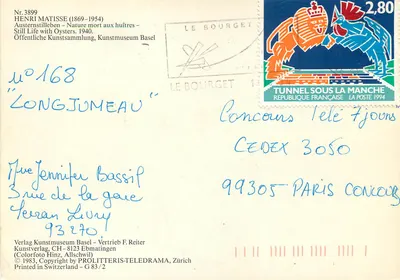 Nr. 3899
HENRI MATISSE (1869-1954)
Austernstilleben - Nature mort aux huîtres -
Still Life with Oysters. 1940.
Öffentliche Kunstsammlung, Kunstmuseum Basel
LE BOURGET
LE BOURGET
2,80
TUNNEL SOUS LA MANCHE
REPUBLIQUE FRANÇAISE LA POSTE 1994
n° 168
"LONGJUMEAU"
Jennifer Bassil
3 rue de la gare
Livry
93270
Concours Télé 7 jours
CEDEX 3050
99305 - PARIS CONCOURS
Verlag Kunstmuseum Basel - Vertrieb F. Reiter
Kunstverlag, CH - 8123 Ebmatingen
(Colorfoto Hinz, Allschwil)
© 1983, Copyright by PROLITTERIS-TELEDRAMA, Zürich
Printed in Switzerland - G 83/2